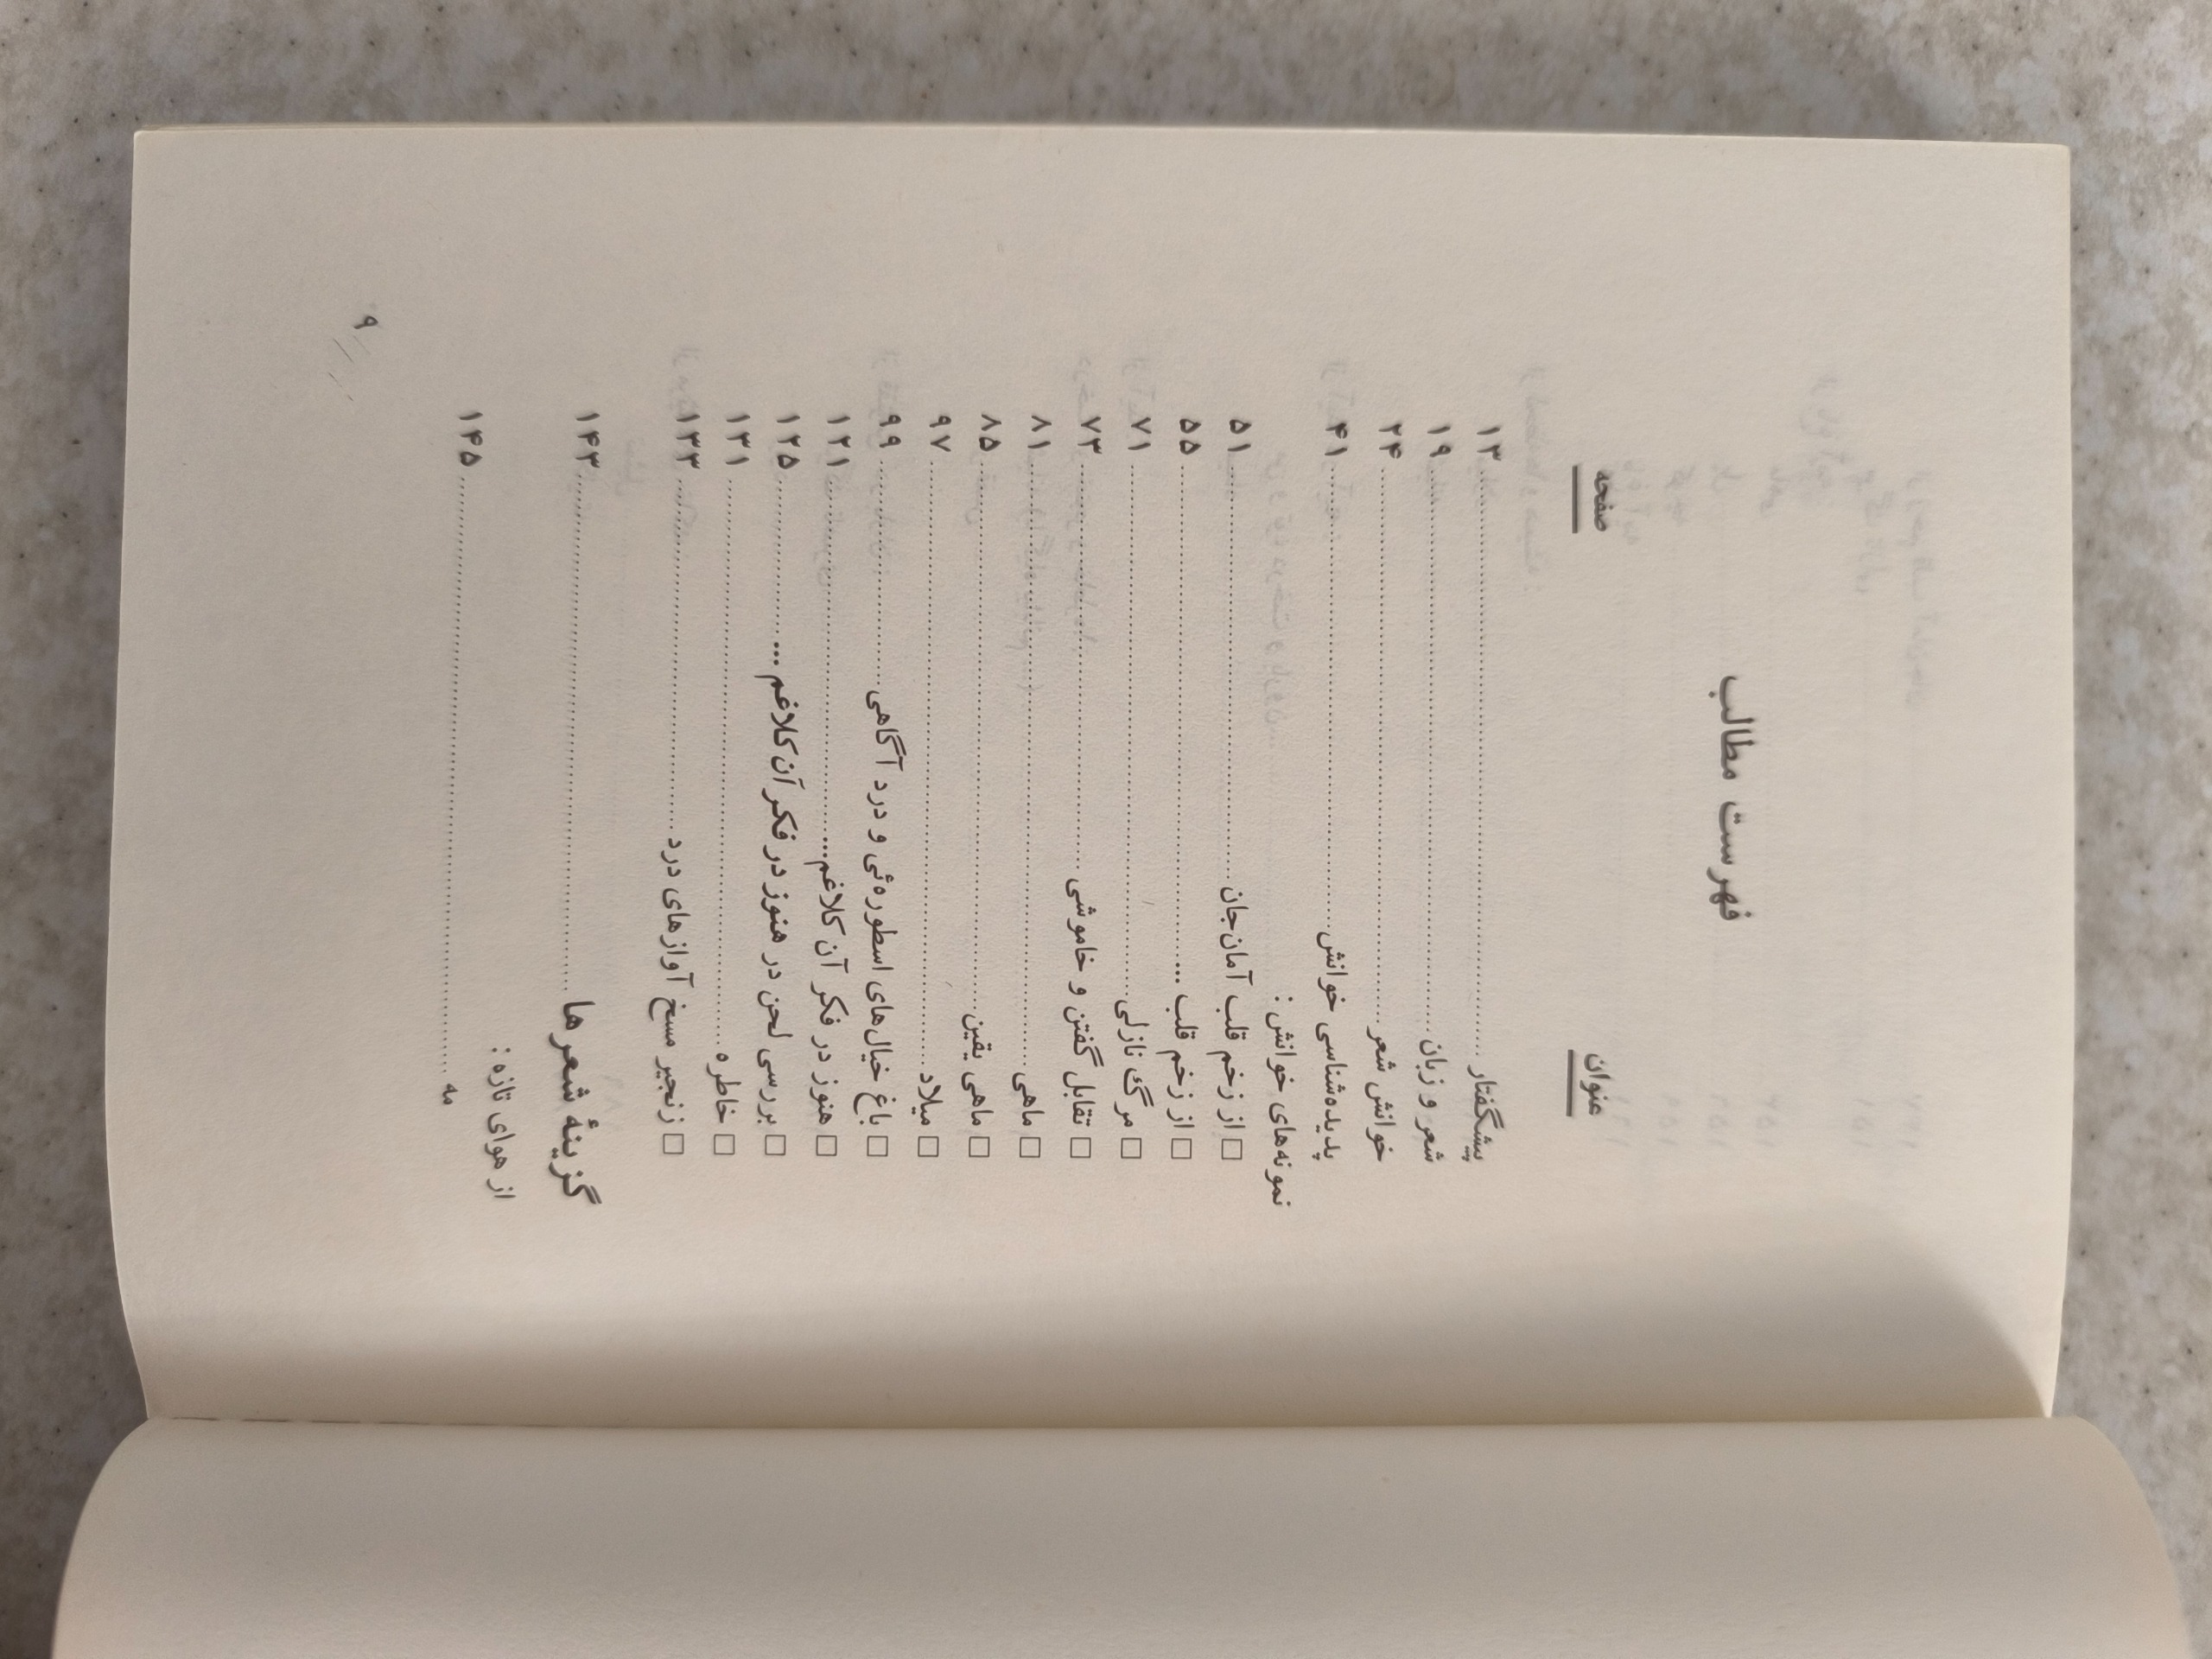 فهرست مطالب
عنوان صفحه
پیشگفتار ۱۳
شعر و زبان ۱۹
خوانش شعر ۲۴
پدیده‌شناسی خوانش ۴۱
نمونه‌های خوانش :
□ از زخم قلب آمان‌جان ۵۱
□ از زخم قلب ... ۵۵
□ مرگ نازلی ۷۱
□ تقابل گفتن و خاموشی ۷۳
□ ماهی ۸۱
□ ماهی یقین ۸۵
□ میلاد ۹۷
□ باغ خیال‌های اسطوره‌ئی و درد آگاهی ۹۹
□ هنوز در فکر آن کلاغم... ۱۲۱
□ بررسی لحن در هنوز در فکر آن کلاغم ... ۱۲۵
□ خاطره ۱۳۱
□ زنجیر مسخ آوازهای درد ۱۳۳
گزینهٔ شعرها ۱۴۳
از هوای تازه :
مه ۱۴۵
۹